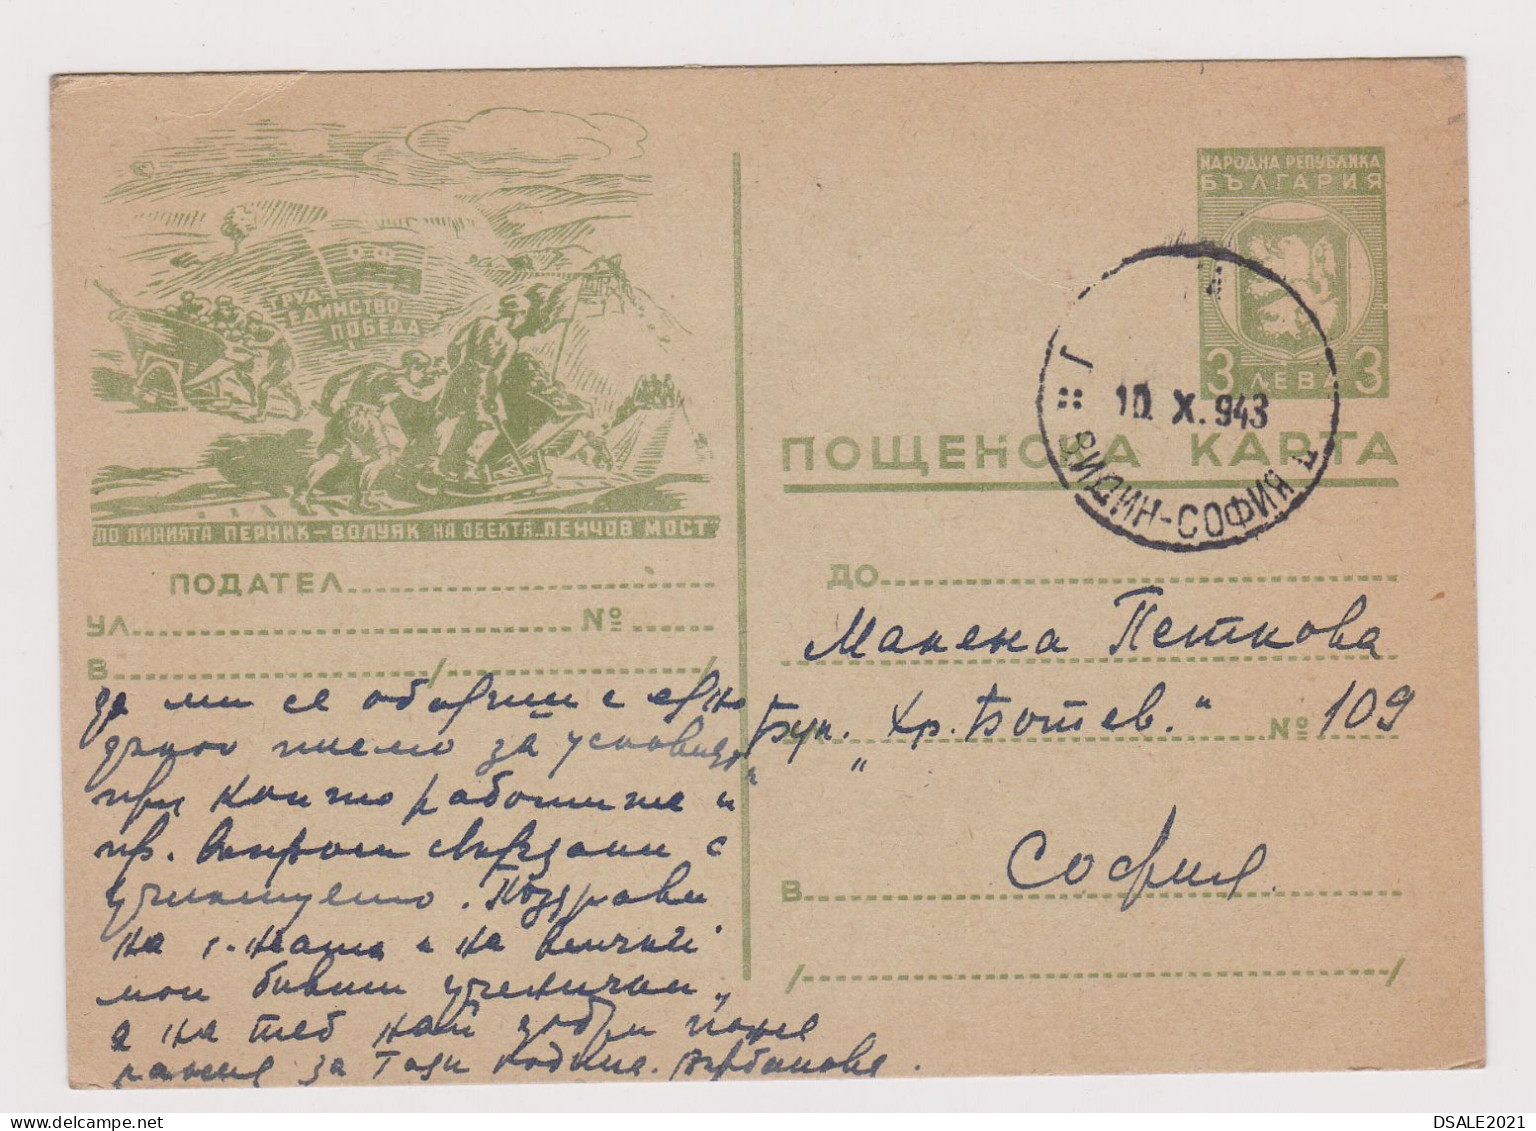 НАРОДНА РЕПУБЛИКА
БЪЛГАРИЯ
3 ЛЕВА 3
ПОЩЕНСКА КАРТА
10. X. 943
ВИДИН-СОФИЯ
О.Ф.
ТРУД
ЕДИНСТВО
ПОБЕДА
ПО ЛИНИЯТА ПЕРНИК-ВОЛУЯК НА ОБЕКТА „ПЕНЧОВ МОСТ"
ПОДАТЕЛ
УЛ. №
В / /
да ми се обадиш с едно
дълго писмо за условията
при които работите и
пр. въпроси свързани с
училището. Поздрави
на г-жата и на всички
мои бивши ученички,
а на теб най добри поже
лания за тази година. Върбанова.
ДО
Петкова
Бул. „Хр. Ботев." № 109
В София.
/ /
DSALE2021